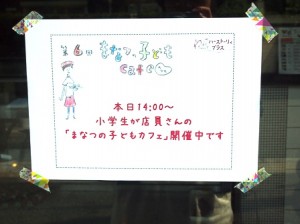 第6回 まなつの子ども
cafe
ハートトーク
プラス
本日14:00～
小学生が店員さんの
「まなつの子どもカフェ」開催中です